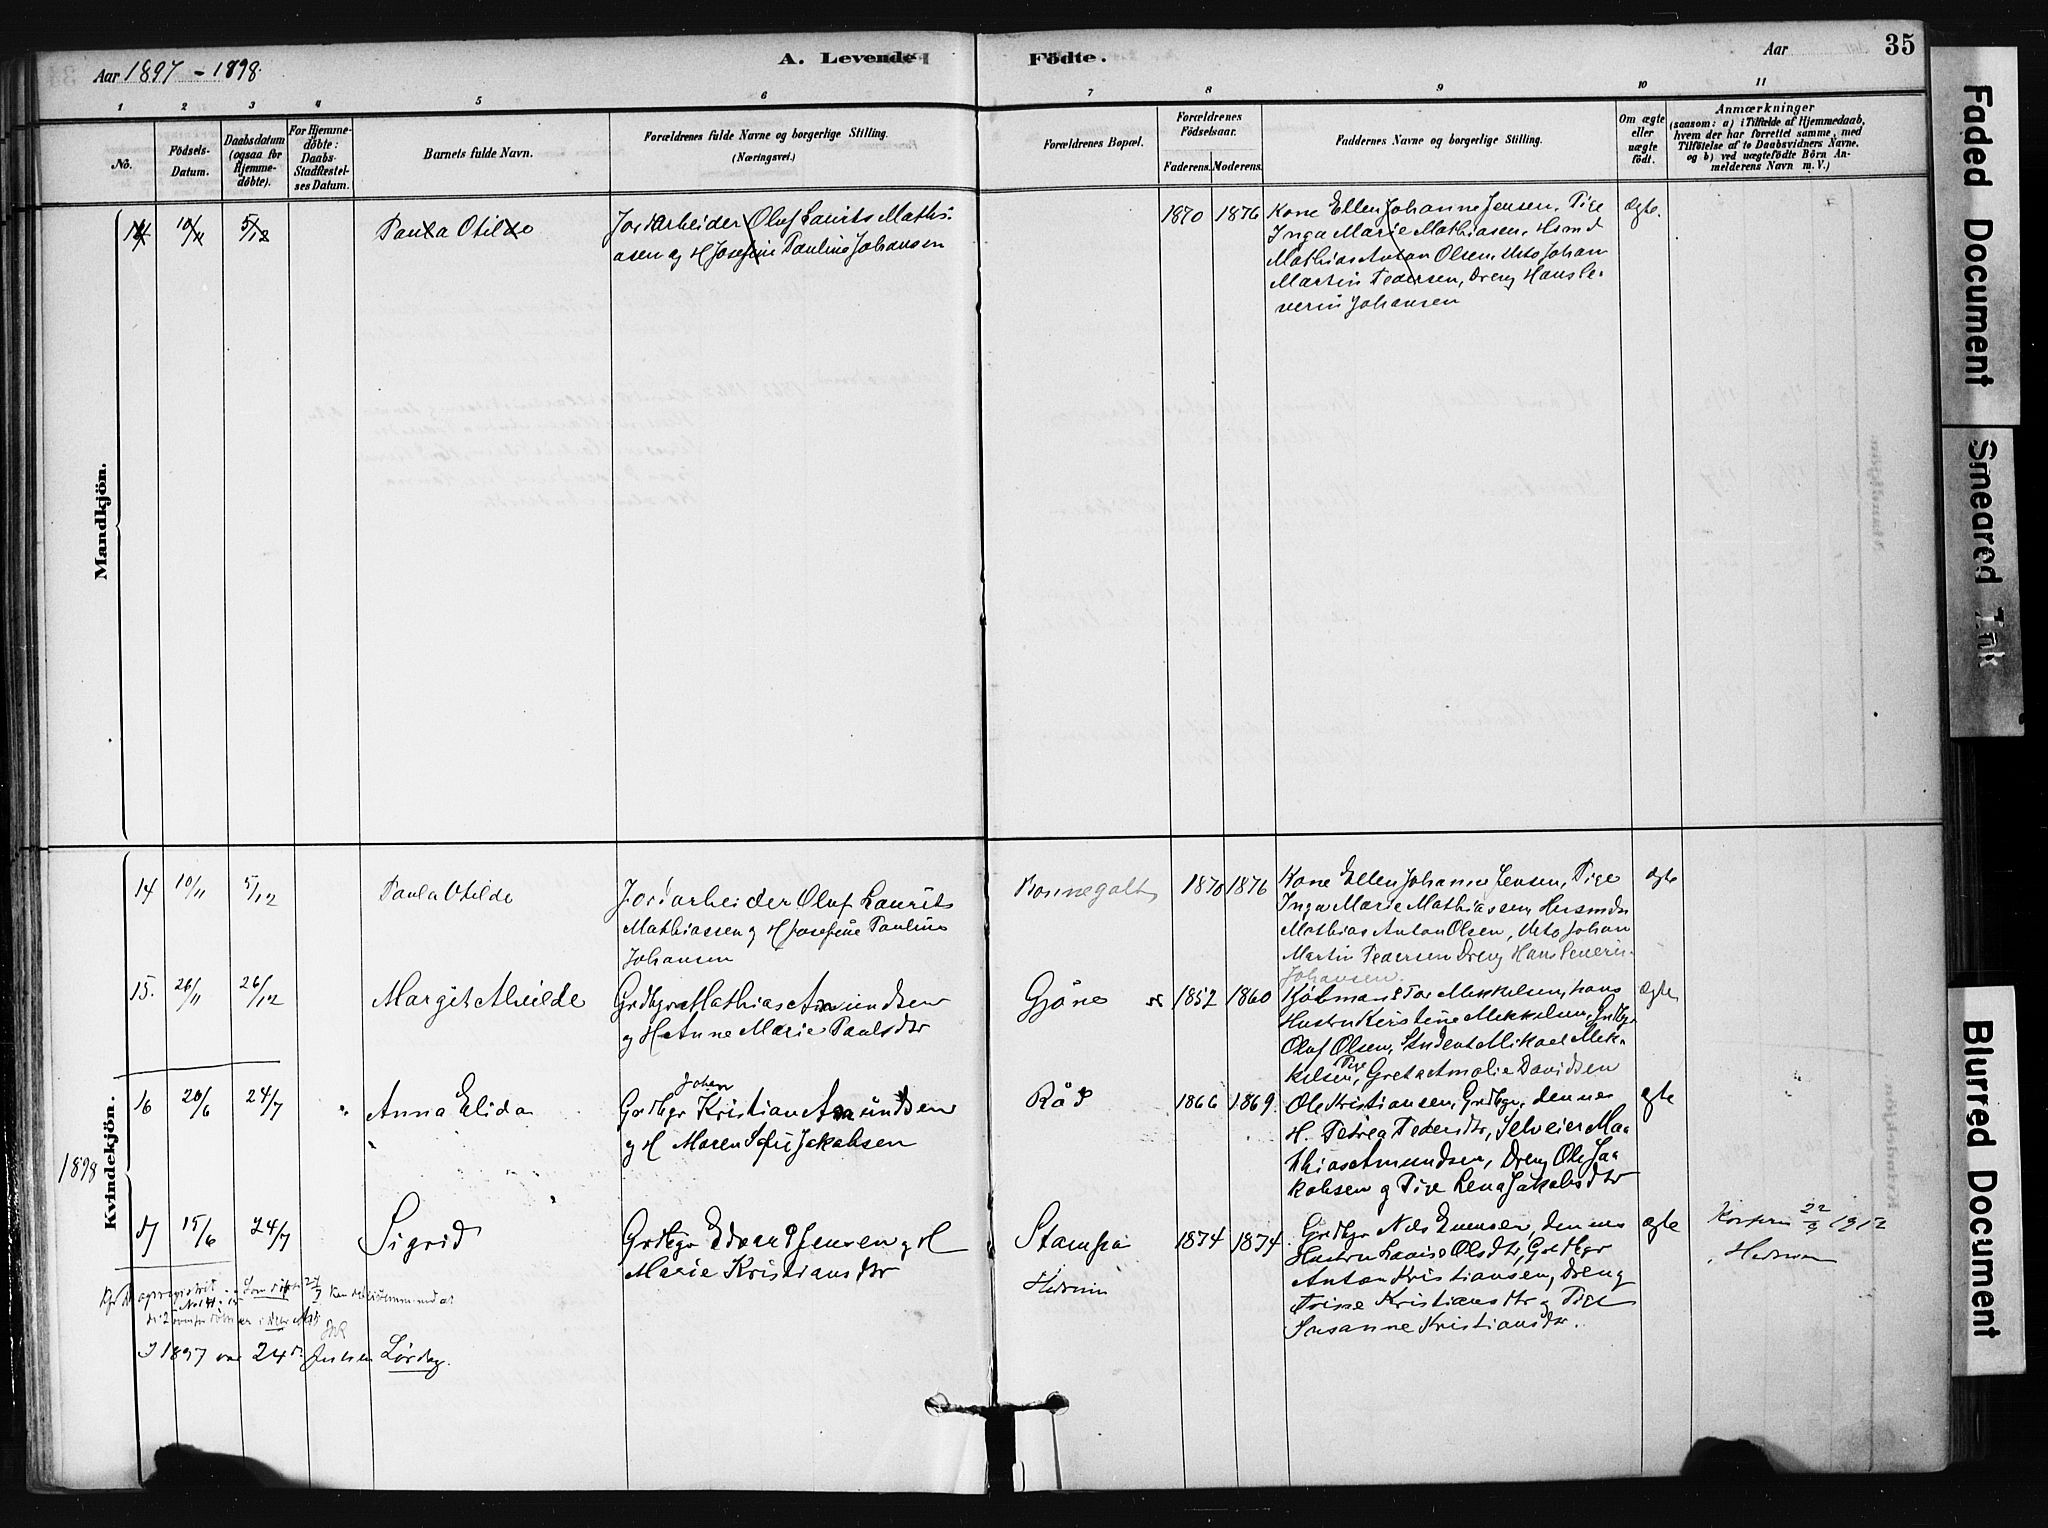 Aar 1897-1898.
A. Levende
Födte.
Aar
35
1 2 3 4 5 6 7 8 9 10 11
No.
Födsels-
Datum.
Daabsdatum
(ogsaa for
Hjemme-
döbte).
For Hjemme-
döbte:
Daabs-
Stadfæstel-
ses Datum.
Barnets fulde Navn.
Forældrenes fulde Navne og borgerlige Stilling.
(Næringsvei.)
Forældrenes Bopæl.
Forældrenes
Födselsaar.
Faderens. Moderens.
Faddernes Navne og borgerlige Stilling.
Om ægte
eller
uægte
födt.
Anmærkninger
(saasom: a) i Tilfælde af Hjemmedaab,
hvem der har forrettet samme, med
Tilföielse af to Daabsvidners Navne.
og b) ved uægtefödte Börn An-
melderens Navn m. V.)
Mandkjön.
14 10/11 5/12 Paula Otilde
Jordarbeider Oluf Laurits Mathi-
asen og H Josefine Pauline Johansen
1870 1876
Kone Ellen Johanne Jensen, Pige
Inga Marie Mathiasen, Hsmd
Mathias Anton Olsen, Johan
Martin Pedersen, Dreng Hans Se-
verin Johansen
Ægte.
Kvindekjön.
14 10/11 5/12 Paula Otilde
Jordarbeider Oluf Laurits
Mathiassen og H Josefine Pauline
Johansen
Bonnegolt 1870 1876
Kone Ellen Johanne Jensen, Pige
Inga Marie Mathiassen, Husmds
Mathias Anton Olsen, Johan
Martin Pedersen Dreng Hans Severin
Johansen.
ægte
15. 26/11 26/12 Margit Alvilde
Grdbgr Mathias Amundsen
og H Anne Marie Paulsdtr
Gjöne 1857 1860
Kjöbmand Tor Mekkelsen, hans
Hustru Kirstine Mekkelsen, Grdbgr
Oluf Olsen, Student Mikael Mek-
kelsen, Pige Greta Amalie Davidsen
Ægte
1898
16 20/6 24/7 " Anna Elida
Grdbgr Johan Kristian Amundsen
og H Maren Sofie Jakobsen
Råd 1866 1869.
Ole Kristiansen, Grdbgr, dennes
H. Petrea Pedersdtr, Selveier Ma-
thias Amundsen, Dreng Ole Ja-
kobsen og Pige Lena Jakobsdtr
ægte
17 15/6 24/7 Sigrid
Grdbgr Edvard Jensen og H
Marie Kristiansdtr
Stampa
Hedrum
1874 1874
Grdbgr Nils Evensen, dennes
Hustru Lovise Olsdtr, Grdbgr
Anton Kristiansen, Dreng
Trine Kristiansdtr og Pige
Susanne Kristiansdtr.
ægte
Konfirm 22/9 1912
Hedrum
I 1897 var 24de Juli en Lørdag.
Faded Document
Smeared Ink
Blurred Document